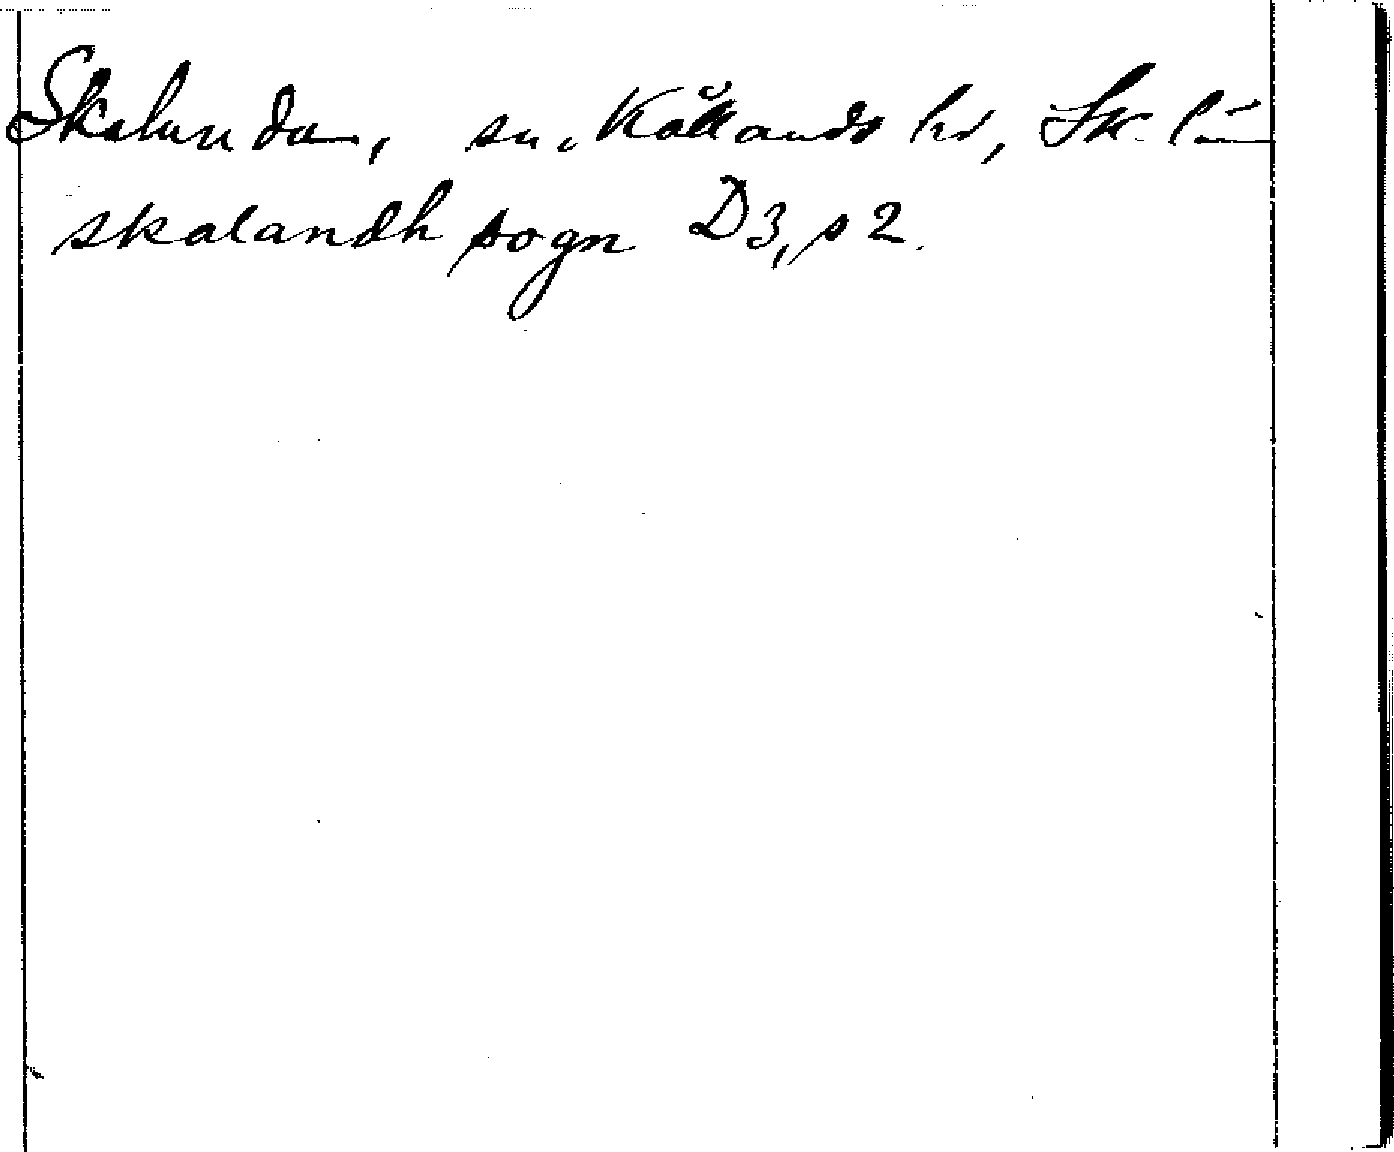 Skalunda, sn, Kållands hd, Sk. län
skalandh sogn D3, s 2.